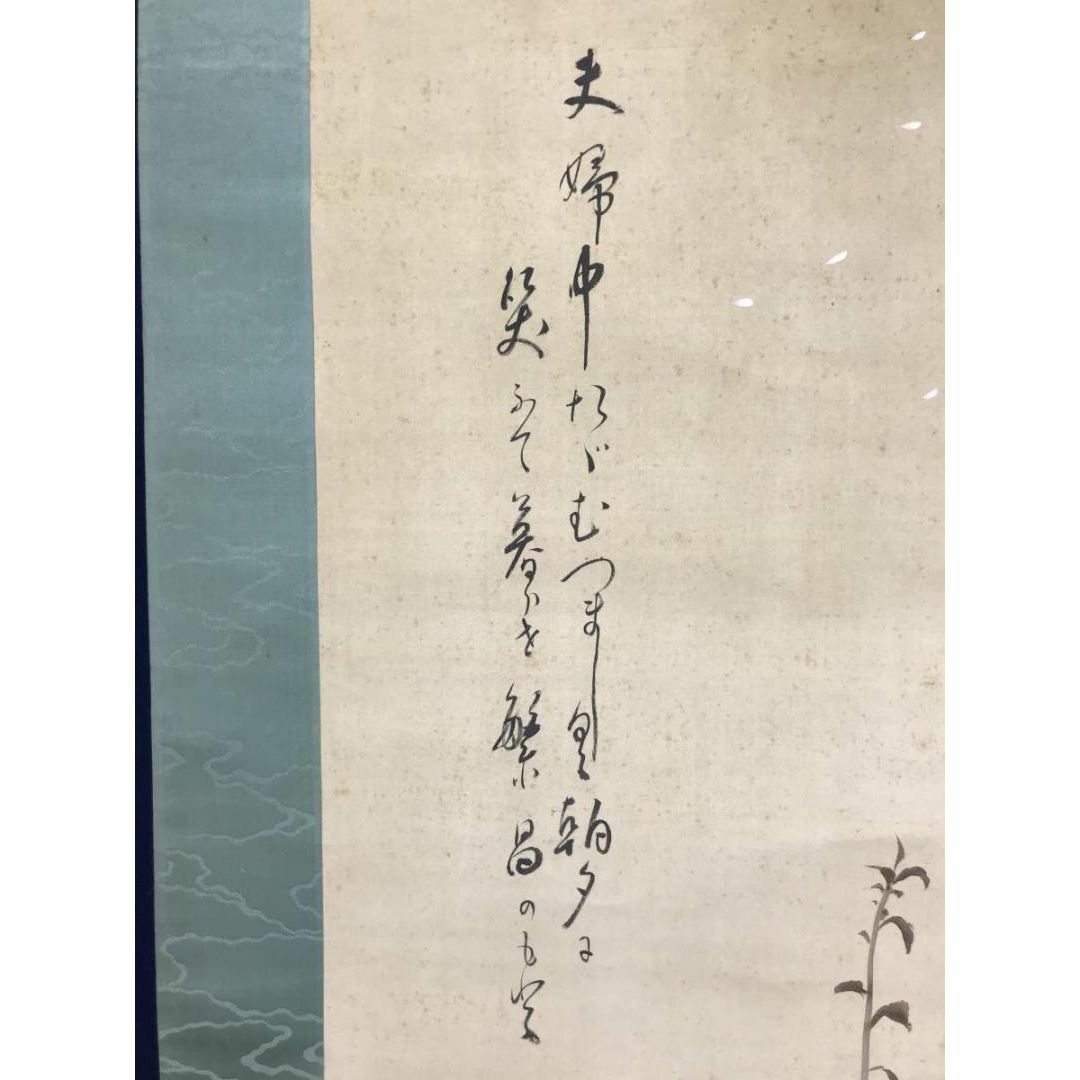 夫婦中たゞむつましく朝夕に
笑ふて暮らせ繁昌のもと